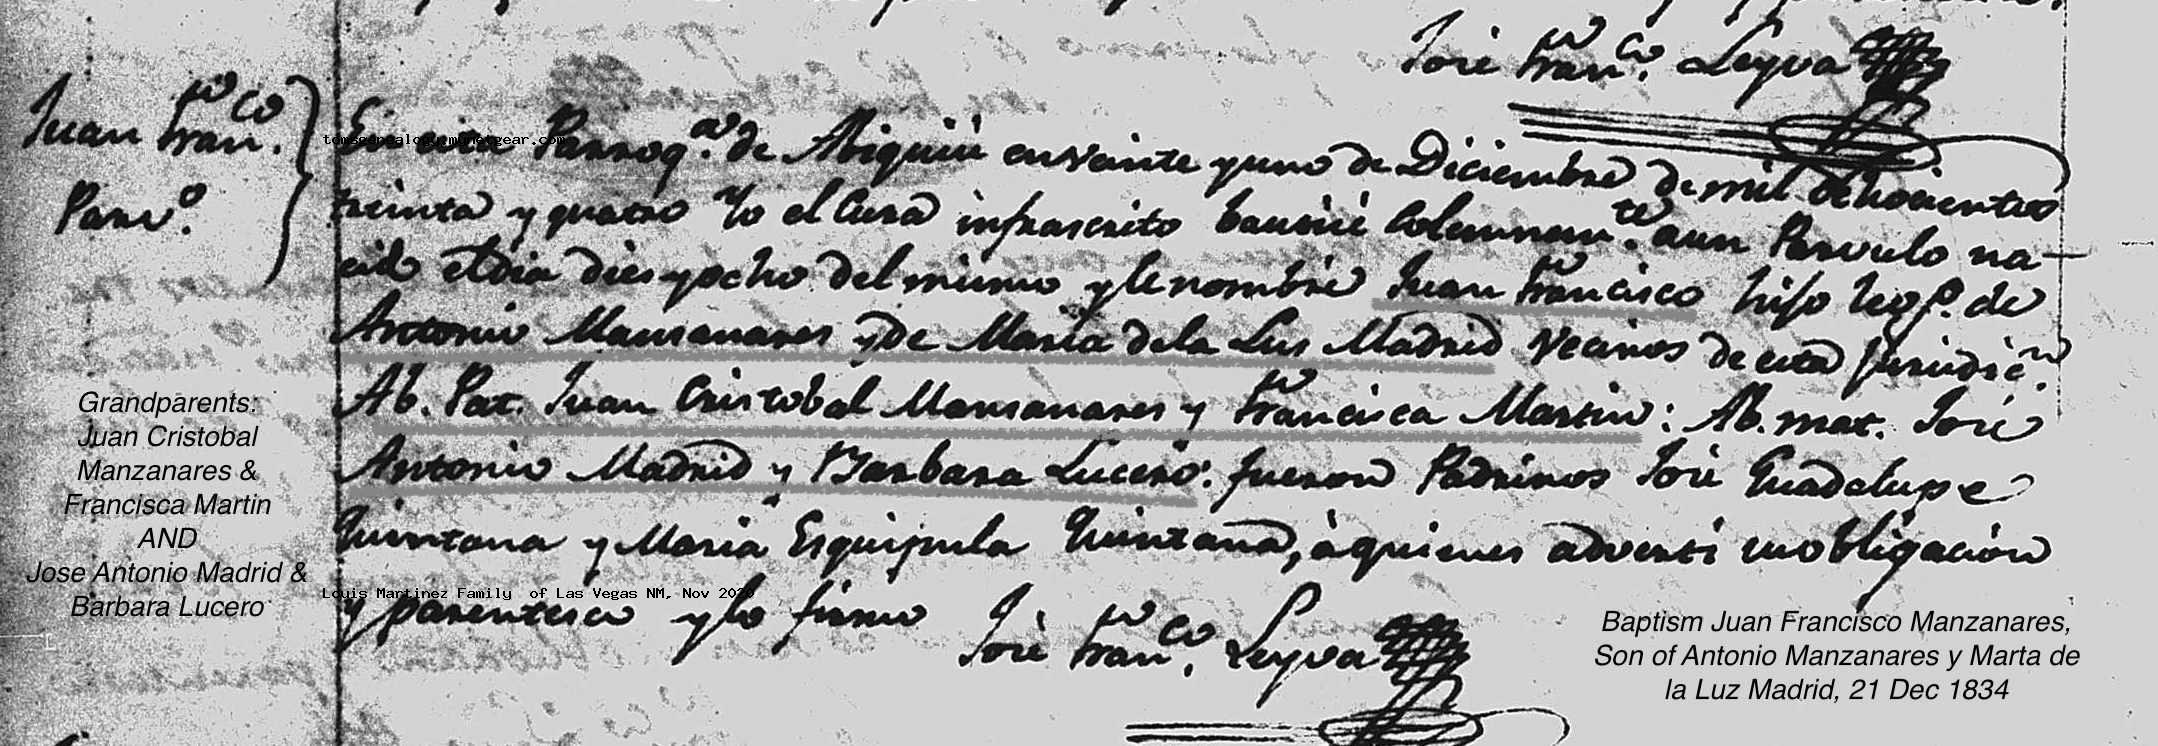 José Franco. Leyva
Juan Franco.
Parvo.
tomsgenealogy.mynetgear.com
En esta Parroqa. de Abiquiú en veinte y uno de Diciembre de mil ochocientos
treinta y quatro Yo el Cura infrascrito bautisé Solemnemte. a un Parvulo na-
cido el dia dies y ocho del mismo y le nombré Juan Francisco hijo legO. de
Antonio Mansanares y de Maria de la Lus Madrid Vecinos de esta Jurisdicn.
Ab. Pat. Juan Cristobal Mansanares y Francisca Martin: Ab. mat. José
Antonio Madrid y Barbara Lucero: fueron Padrinos José Guadalupe
Quintana y Maria Esquipula Quintana, à quienes advertí su obligacion
y parentesco y lo firmo José Franco. Leyva
Grandparents:
Juan Cristobal
Manzanares &
Francisca Martin
AND
Jose Antonio Madrid &
Barbara Lucero
Louis Martinez Family of Las Vegas NM, Nov 2020
Baptism Juan Francisco Manzanares,
Son of Antonio Manzanares y Marta de
la Luz Madrid, 21 Dec 1834